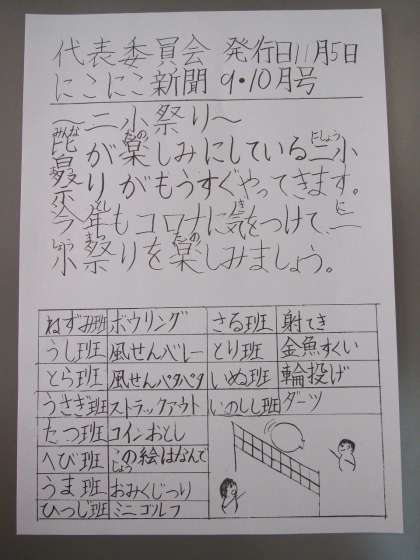 代表委員会 発行日11月5日
にこにこ新聞 9・10月号
～二小祭り～
皆が楽しみにしている二小
祭りがもうすぐやってきます。
今年もコロナに気をつけて、二
小祭りを楽しみましょう。
ねずみ班 ボウリング さる班 射てき
うし班 風せんバレー とり班 金魚すくい
とら班 風せんパタパタ いぬ班 輪投げ
うさぎ班 ストラックアウト いのしし班 ダーツ
たつ班 コインおとし
へび班 この絵はなんで
しょう
うま班 おみくじつり
ひつじ班 ミニゴルフ